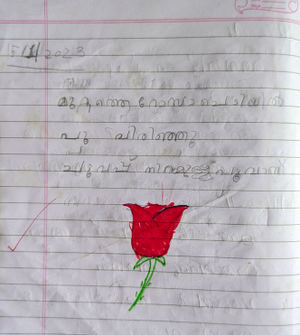 5/1/2023
മുറ്റത്തെ റോസാ ചെടിയിൽ
പൂ വിരിഞ്ഞു
ചുവപ്പ് നിറമുള്ള പൂവാണ്